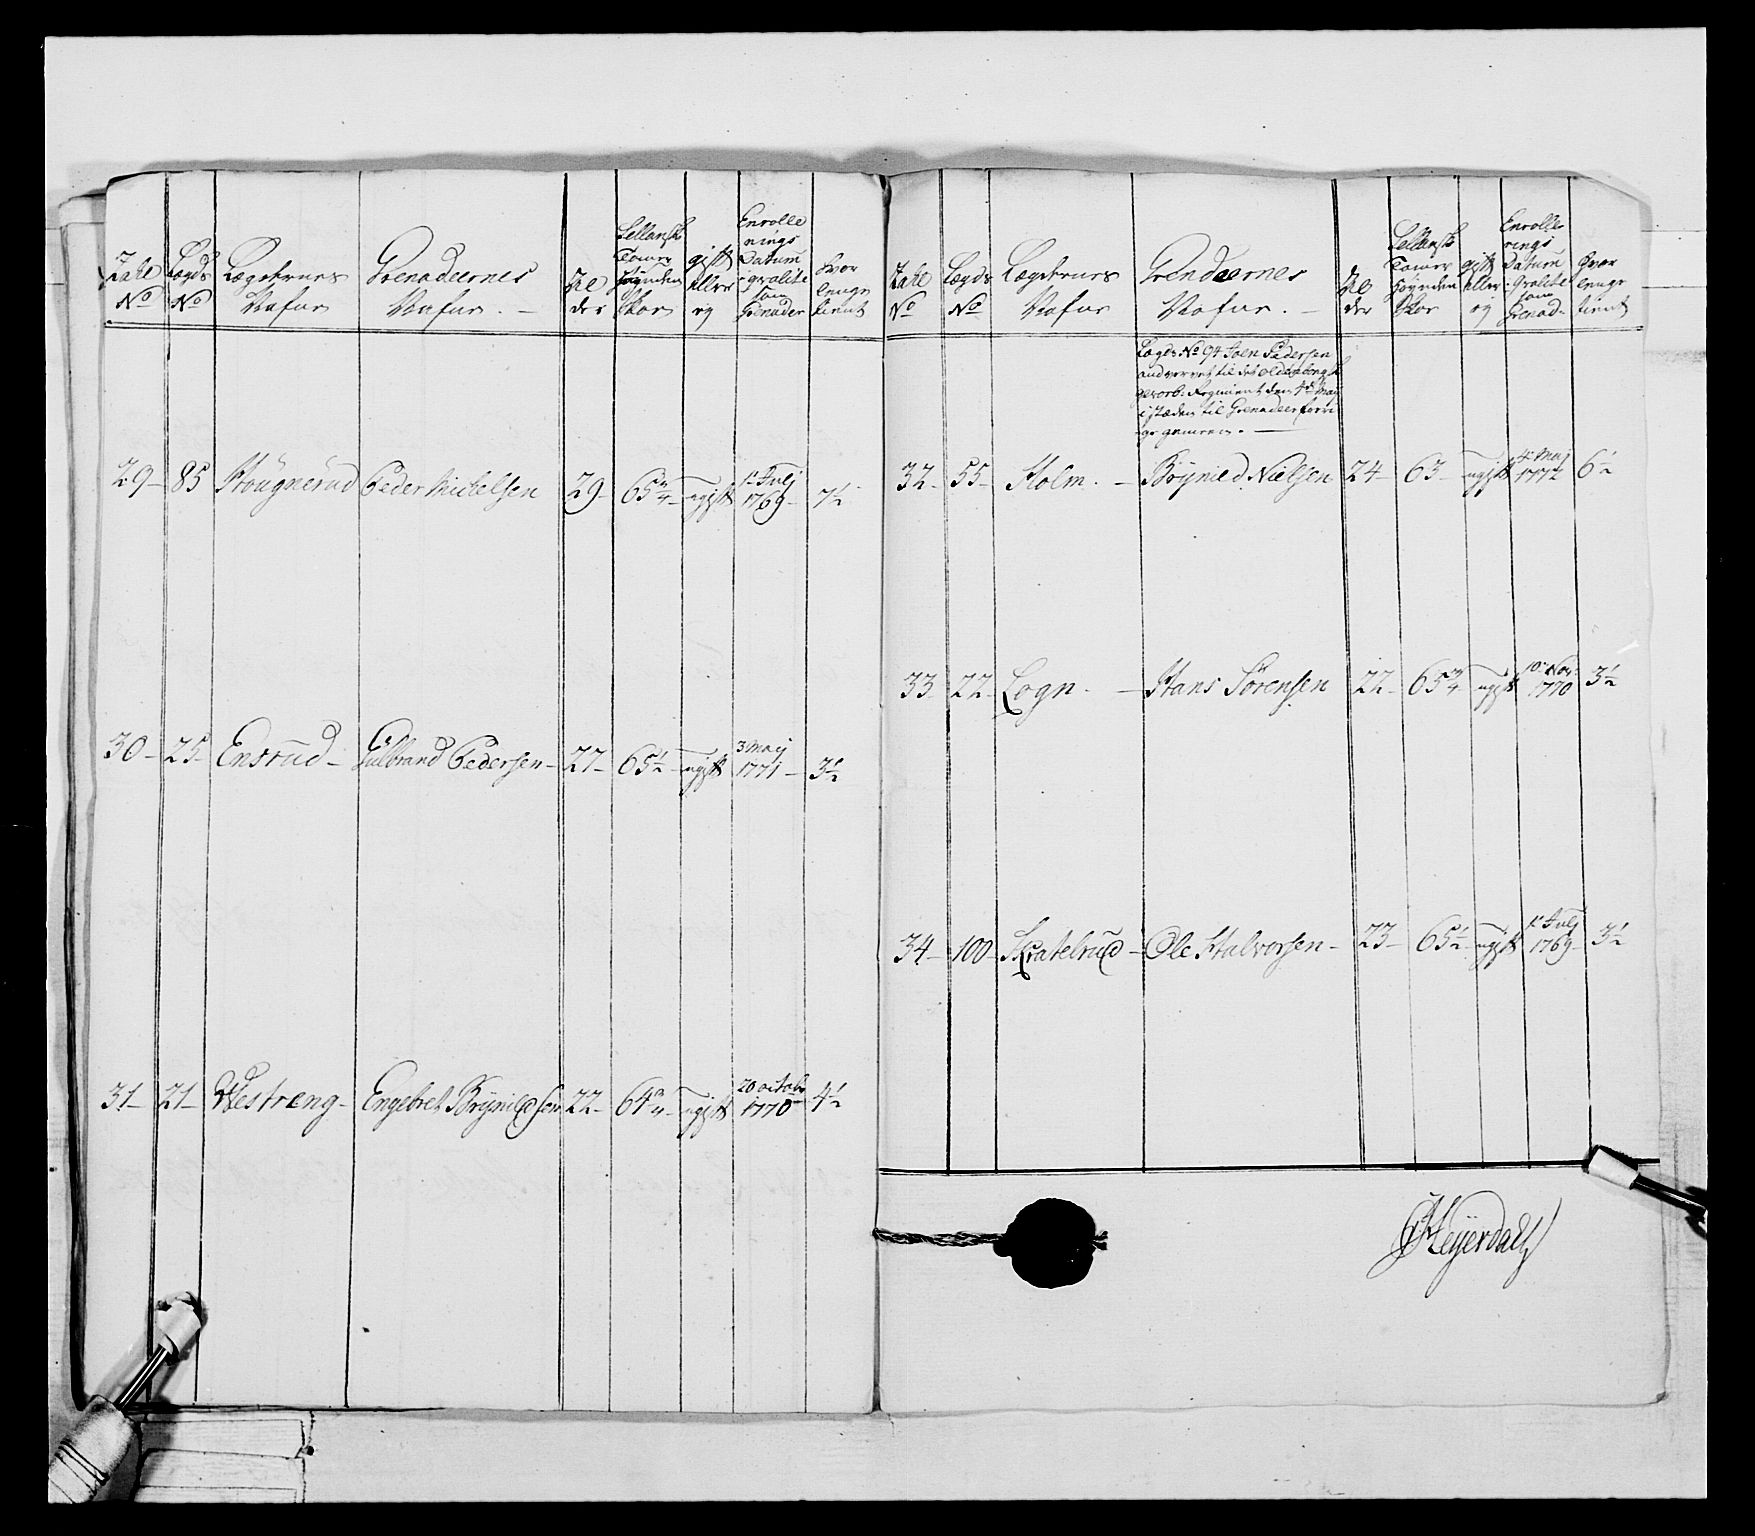 Tahl No
Lægds No
Lægdernes Nafne
Grenadeernes Nafne. -
Al der
Sellansk Tomer høyden Skoe
gift eller ey
Enrolle rings Datum i qvalite som Grenader
hvor lenge tient
29- 85 Hougnerud Peder Michelsen 29- 65 3/4- ugift 1t Julj 1769- 7 1/2
30- 25- Ensrud- Gulbrand Pedersen- 27- 65 1/2- ugift 3 Maij 1771- 3 1/2
31- 21- Westreng- Engebret Brÿnildsen 22- 64 3/4- ugift 20 octobr 1770 4 1/2
Tahl No
Lægds No
Lægdernes Nafne
Grendeernes Nafne. -
Al der
Sellansk Tomer høyden Skoe
gift eller ej
Enrolle rings Datum i Qvalite som Grenad-
hvor lenge tient
Lægds No 94 Joen Pedersen
til det oldenborgsk
gevorb. Regiment den 4de Maj
i stæden til Grenadeer
32- 55- Holm. - Brÿnild Nielsen 24- 63- ugift 4t Maj 1772 6 1/2
33- 22- Logn. - Hans Sørensen 22- 65 3/4 ugift 10- Nov- 1770 3 1/2
34- 100- Skratelrud- Ole Halvorsen- 23- 65 1/2 ugift 1t Julj 1769- 3 1/2
Heyerdahl